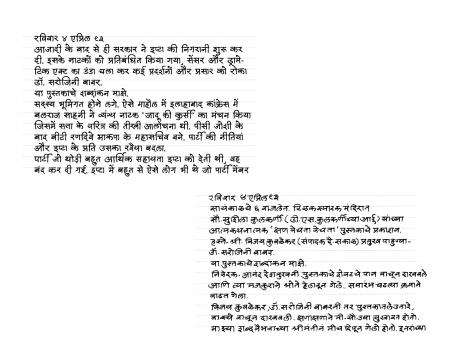 रविवार ४ एप्रिल ९३
आजादी के बाद से ही सरकार ने इप्टा की निगरानी शुरू कर
दी, इसके नाटकों को प्रतिबंधित किया गया, सेंसर और ड्रामे-
टिक एक्ट का डंडा चला कर कई प्रदर्शनों और प्रसार को रोका
डॉ. सरोजिनी बाबर.
या पुस्तकाचे शब्दांकन माझे.
सदस्य भूमिगत होने लगे. ऐसे माहौल में इलाहाबाद कांफ्रेंस में
बलराज साहनी ने व्यंग्य नाटक 'जादू की कुर्सी' का मंचन किया
जिसमें सत्ता के चरित्र की तीखी आलोचना थी. पीसी जोशी के
बाद बीटी रणदिवे भाकपा के महासचिव बने. पार्टी की नीतियां
और इप्टा के प्रति उसका रवैया बदला.
पार्टी जो थोड़ी बहुत आर्थिक सहायता इप्टा को देती थी, वह
बंद कर दी गई. इप्टा में बहुत से ऐसे लोग भी थे जो पार्टी मेंबर
रविवार ४ एप्रिल ९३
सायंकाळचे ६ वाजलेत. टिळकस्मारक मंदिरात
सौ. सुशीला कुलकर्णी (जी.एस.कुलकर्णींच्या आई) यांच्या
आत्मकथनात्मक 'क्षण वेचता वेचता' पुस्तकाचे प्रकाशन.
हस्ते-श्री. विजय कुवळेकर (संपादक दै.सकाळ) प्रमुख पाहुण्या-
डॉ. सरोजिनी बाबर.
या पुस्तकाचे शब्दांकन माझे.
निवेदक- आनंद देशमुखनी पुस्तकाचे शेवटचे पान वाचून दाखवले
आणि त्या मजकुराने श्रोते हेलावून गेले. समारंभ चढत्या क्रमाने
वाढत गेला.
विजय कुवळेकर, डॉ. सरोजिनी बाबरनी तर पुस्तकातले उतारे,
वाक्ये वाचून दाखवली. क्षणाक्षणाने मी-श्री.उषा सुखावत होतो.
माझ्या शब्दवैभवाच्या श्रीमंतीने मीच दिपून गेलो होतो. दूतराच्या